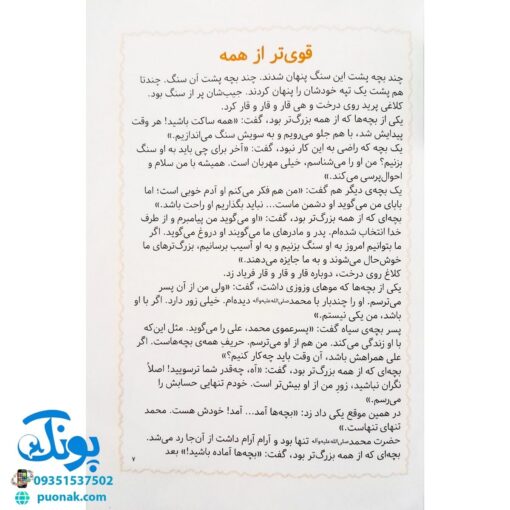 قوی‌تر از همه
چند بچه پشت این سنگ پنهان شدند. چند بچه پشت آن سنگ. چندتا
هم پشت یک تپه خودشان را پنهان کردند. جیب‌شان پر از سنگ بود.
کلاغی پرید روی درخت و هی قار و قار و قار کرد.
یکی از بچه‌ها که از همه بزرگ‌تر بود، گفت: «همه ساکت باشید! هر وقت
پیدایش شد، با هم جلو می‌رویم و به سویش سنگ می‌اندازیم.»
یک بچه که راضی به این کار نبود، گفت: «آخر برای چی باید به او سنگ
بزنیم؟ من او را می‌شناسم، خیلی مهربان است. همیشه با من سلام و
احوال‌پرسی می‌کند.»
یک بچه‌ی دیگر هم گفت: «من هم فکر می‌کنم او آدم خوبی است؛ اما
بابای من می‌گوید او دشمن ماست... نباید بگذاریم او راحت باشد.»
بچه‌ای که از همه بزرگ‌تر بود، گفت: «او می‌گوید من پیامبرم و از طرف
خدا انتخاب شده‌ام. پدر و مادرهای ما می‌گویند او دروغ می‌گوید. اگر
ما بتوانیم امروز به او سنگ بزنیم و به او آسیب برسانیم، بزرگ‌ترهای ما
خوش‌حال می‌شوند و به ما جایزه می‌دهند.»
کلاغ روی درخت، دوباره قار و قار و قار فریاد زد.
یکی از بچه‌ها که موهای وزوزی داشت، گفت: «ولی من از آن پسر
می‌ترسم. او را چندبار با محمدصلی‌الله‌علیه‌وآله دیده‌ام. خیلی زور دارد. اگر با او
باشد، من یکی نیستم.»
پسر بچه‌ی سیاه گفت: «پسرعموی محمد، علی را می‌گوید. مثل این‌که
با او زندگی می‌کند. من هم از او می‌ترسم. حریف همه‌ی بچه‌هاست. اگر
علی همراهش باشد، آن وقت باید چه‌کار کنیم؟»
بچه‌ای که از همه بزرگ‌تر بود، گفت: «آه، چه‌قدر شما ترسویید! اصلاً
نگران نباشید، زور من از او بیش‌تر است. خودم تنهایی حسابش را
می‌رسم.»
در همین موقع یکی داد زد: «بچه‌ها آمد... آمد! خودش هست. محمد
تنهای تنهاست.»
حضرت محمدصلی‌الله‌علیه‌وآله تنها بود و آرام آرام داشت از آن‌جا رد می‌شد.
بچه‌ای که از همه بزرگ‌تر بود، گفت: «بچه‌ها آماده باشید!» بعد
۷
پونک
09351537502
puonak.com